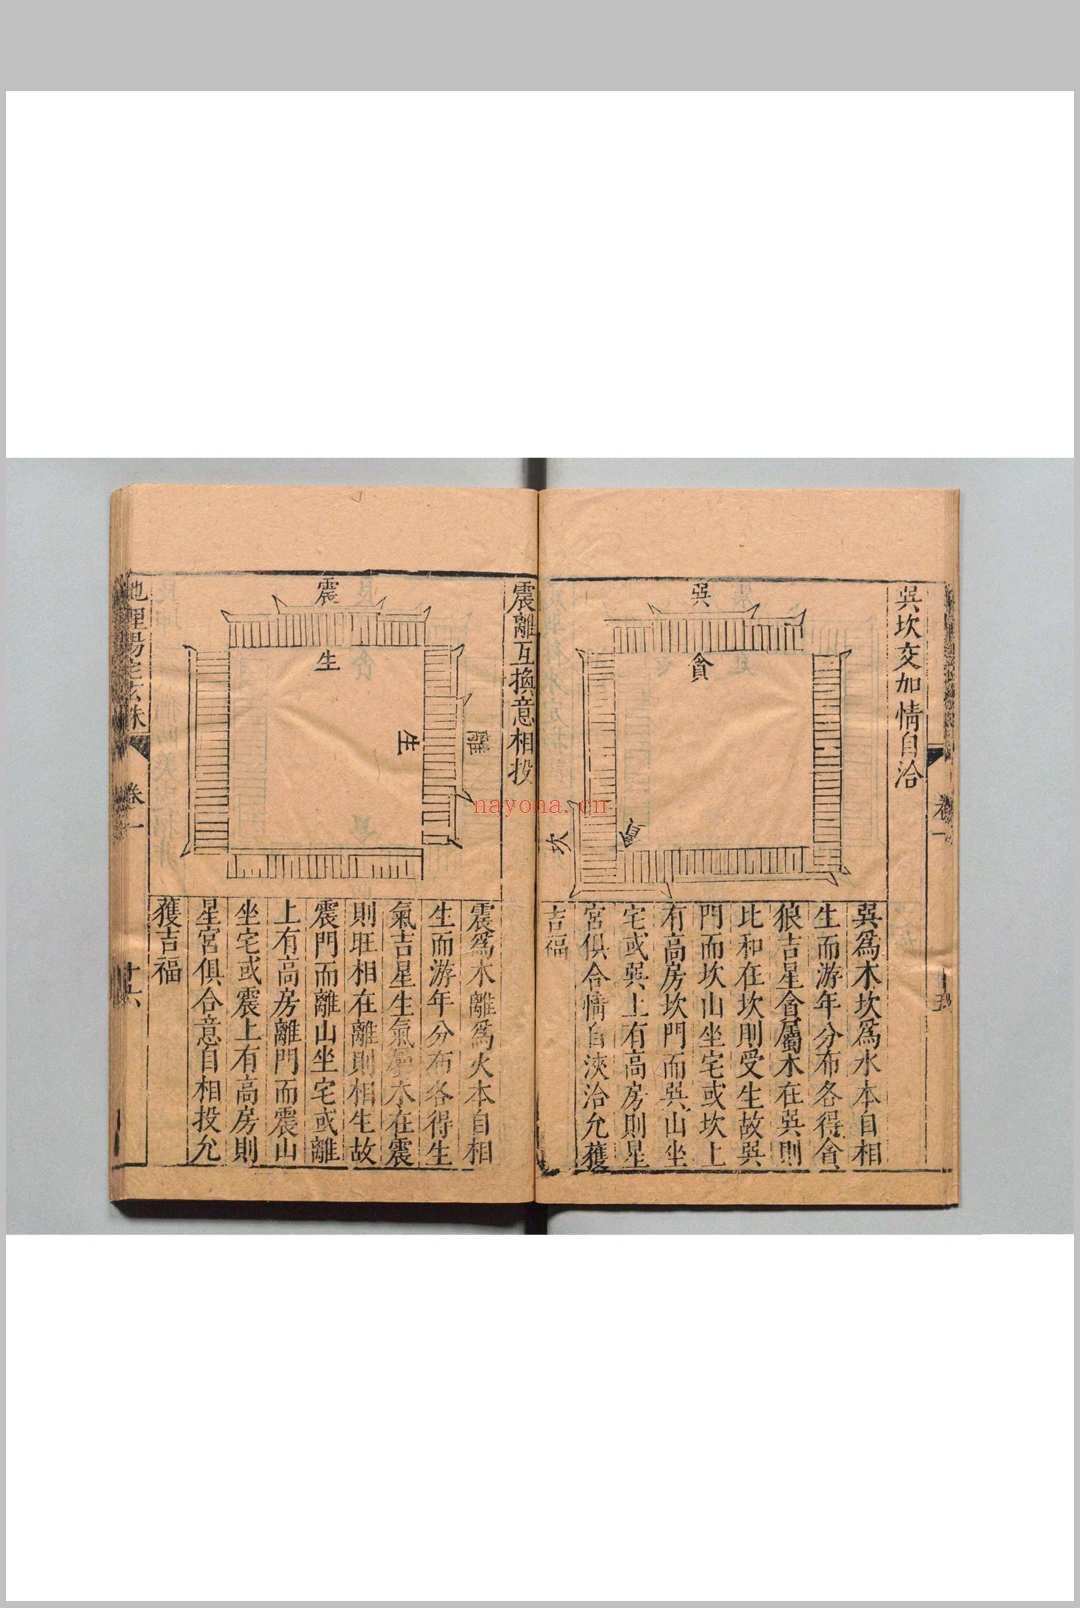 巽坎交加情自洽
巽
貪
坎
貪
巽爲木坎爲水本自相
生而游年分布各得貪
狼吉星貪屬木在巽則
比和在坎則受生故巽
門而坎山坐宅或坎上
有高房坎門而巽山坐
宅或巽上有高房則星
宮俱合情自浹洽允獲
吉福
卷一
震離互換意相投
震
生
離
生
震爲木離爲火本自相
生而游年分布各得生
氣吉星生氣屬木在震
則旺相在離則相生故
震門而離山坐宅或離
上有高房離門而震山
坐宅或震上有高房則
星宮俱合意自相投允
獲吉福
地理陽宅玄珠
卷一
十六
nayona.cn